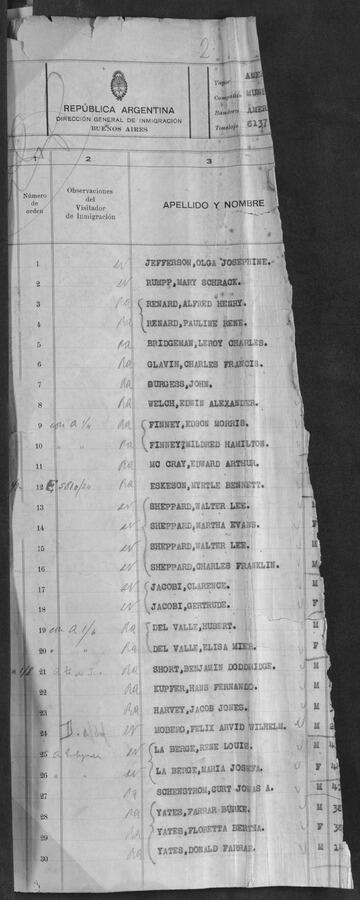 2
REPÚBLICA ARGENTINA
DIRECCIÓN GENERAL DE INMIGRACIÓN
BUENOS AIRES
Vapor AME
Compañía MUN
Bandera AMER
Tonelaje 6137
1 2 3
Número de orden
Observaciones del Visitador de Inmigración
APELLIDO Y NOMBRE
1 en JEFFERSON,OLGA JOSEPHINE.
2 en RUMPP,MARY SCHRACK.
3 Ra RENARD,ALFRED HENRY.
4 Ra RENARD,PAULINE RENE.
5 Ra BRIDGEMAN,LEROY CHARLES.
6 Ra GLAVIN,CHARLES FRANCIS.
7 Ra BURGESS,JOHN.
8 Ra WELCH,EDWIN ALEXANDER.
9 con a 1/4 Ra FINNEY,EDSON MORRIS.
10 " " Ra FINNEY,MILDRED HAMILTON.
11 Ra MC CRAY,EDWARD ARTHUR.
12 Ra ESKESON,MYRTLE BENNETT.
13 en SHEPPARD,WALTER LEE.
14 en SHEPPARD,MARTHA EVANS. F
15 en SHEPPARD,WALTER LEE. M
16 en SHEPPARD,CHARLES FRANKLIN. M
17 en JACOBI,CLARENCE. M
18 en JACOBI,GERTRUDE. F
19 con a 1/4 Ra DEL VALLE,HUBERT. M
20 " " Ra DEL VALLE,ELISA MIER. F
21 Ra SHORT,BENJAMIN DODDRIDGE. M
22 Ra KUPFER,HANS FERNANDO. M
23 Ra HARVEY,JACOB JONES. M
24 en MOBERG,FELIX ARVID WILHELM. M
25 en LA BERGE,RENE LOUIS. M
26 en LA BERGE,MARIA JOSEFA. F
27 Ra SCHENSTROM,CURT JONAS A. M
28 Ra YATES,FARRAR BURKE. M 38
29 Ra YATES,FLORETTA BERTHA. F
30 Ra YATES,DONALD FARRAR. M